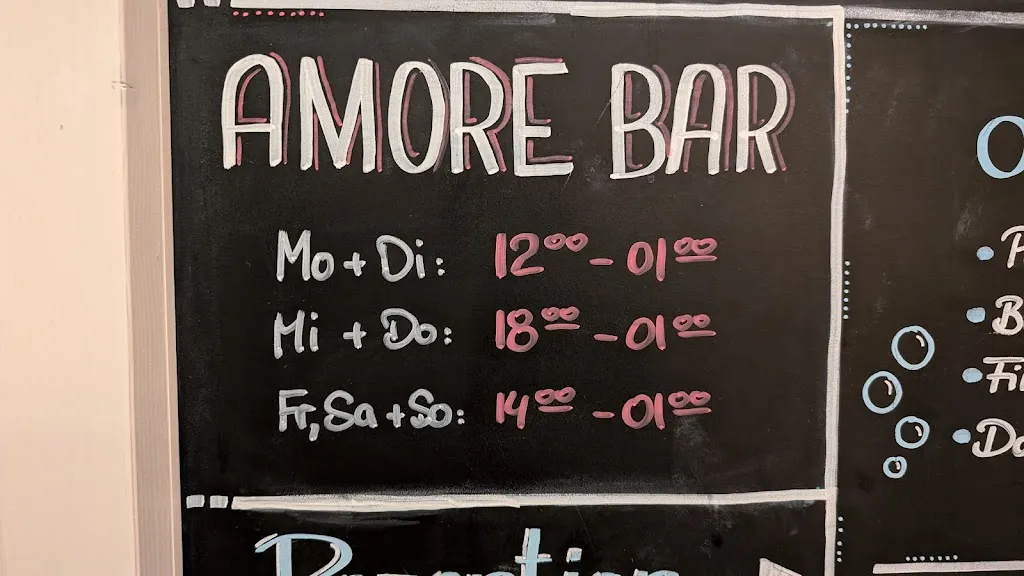 AMORE BAR
Mo + Di: 12⁰⁰ - 01⁰⁰
Mi + Do: 18⁰⁰ - 01⁰⁰
Fr, Sa + So: 14⁰⁰ - 01⁰⁰